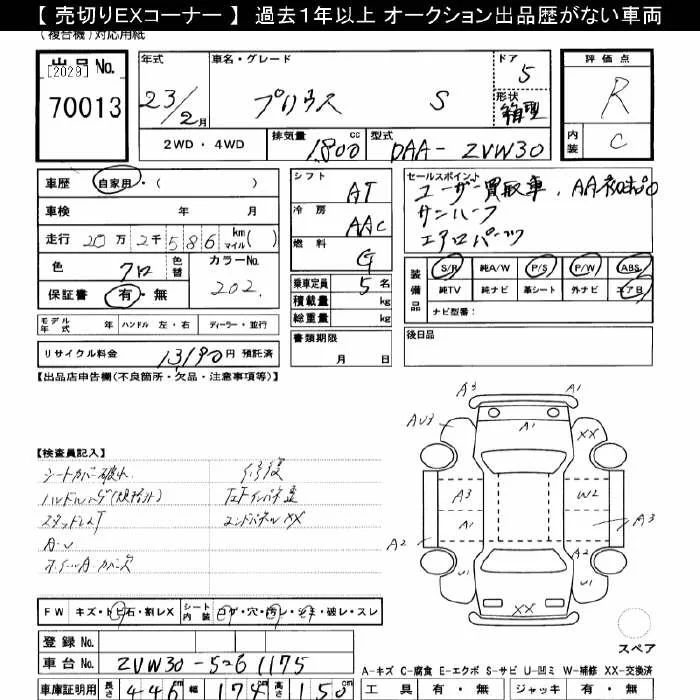 【 売切りEXコーナー 】 過去１年以上 オークション出品歴がない車両
(複合機) 対応用紙
出品 No. [2029] 70013
年式 23/2月
車名・グレード プリウス S
ドア 5
形状 箱型
評価点 R
内装 C
2WD・4WD
排気量 1,800 cc
型式 DAA-ZVW30
車歴 自家用・( )
車検 年 月
走行 20万2千586 km マイル( )
色 クロ 色替 カラーNo. 202
保証書 有・無
シフト AT
冷房 AAC
燃料 G
乗車定員 5 名
積載量 kg
総重量 kg
書類期限 月 日
セールスポイント
ユーザー買取車、AA初出品
サンルーフ
エアロパーツ
装備品 S/R 純A/W P/S P/W ABS
純TV 純ナビ 革シート 外ナビ エアB
ナビ型番：
モデル年式 年 ハンドル 左・右 ディーラー・並行
後日品
リサイクル料金 13,190円 預託済
【出品店申告欄(不良箇所・欠品・注意事項等)】
【検査員記入】
シートカバー破れ 修復
スタッドレスT エンドパネルXX
ホイールカバーキズ
A3 A1
AU3 A1 XX
A3 W2
A1 A3
A2
U1 U1
XX
スペア
FW キズ・トビ石・割レX シート内装 コゲ・穴・汚レ・シミ・破レ・スレ
登録 No.
車台 No. ZVW30-5261175
車庫証明用 長さ 446 cm 幅 174 cm 高さ 150 cm
A-キズ C-腐食 E-エクボ S-サビ U-凹ミ W-補修 XX-交換済
工具 有・無 ジャッキ 有・無